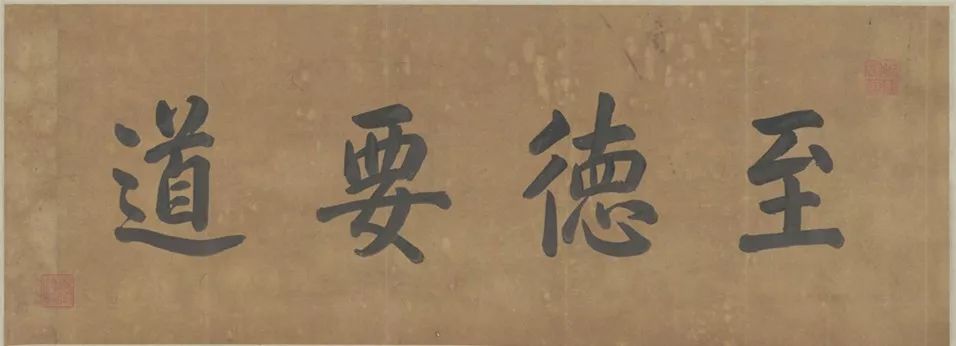 至德要道